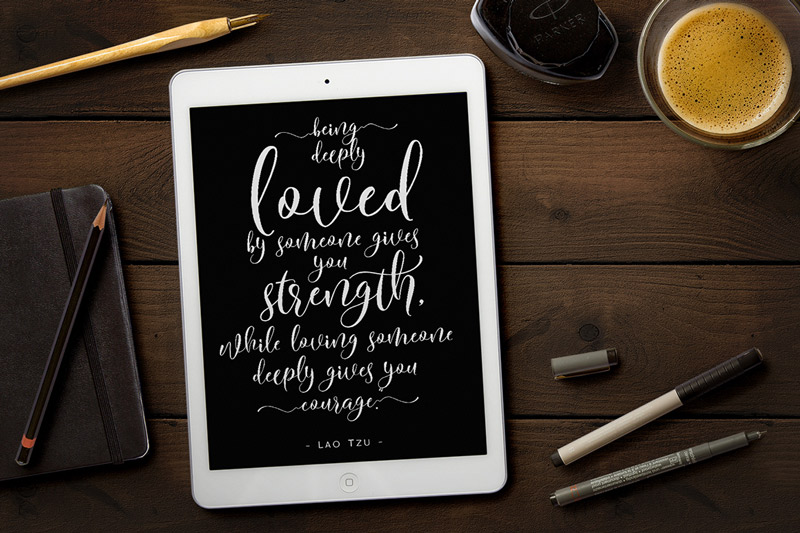 being
deeply
loved
by someone gives
you
strength,
while loving someone
deeply gives you
courage.
- LAO TZU -
PARKER